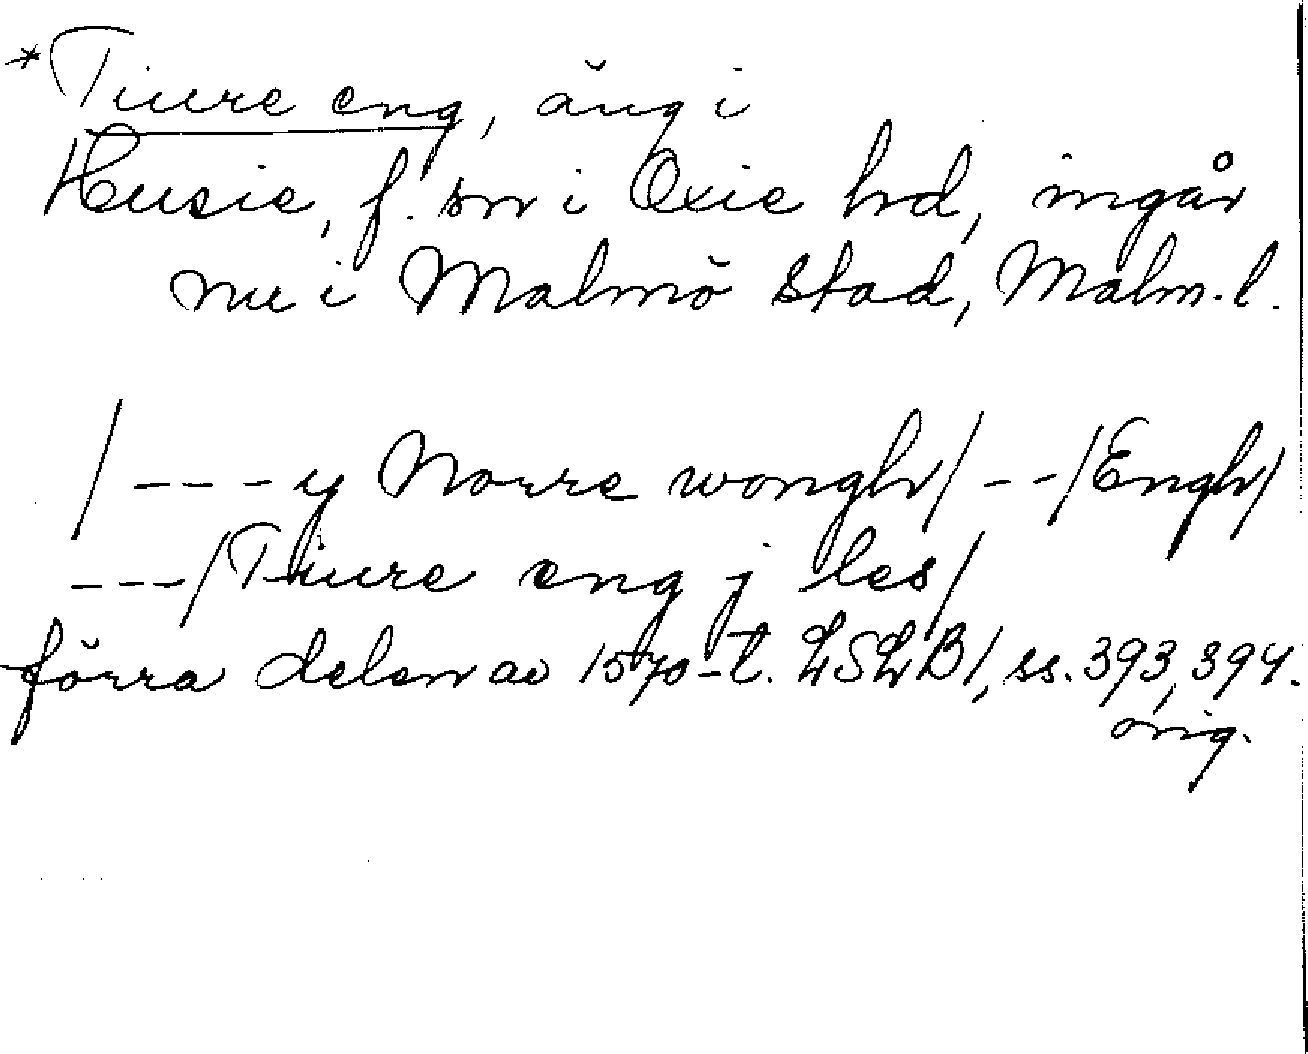 *Tiure eng, äng i
Husie, f. sn i Oxie hd, ingår
nu i Malmö stad, Malm.l.
/---y Norre wongh/--/Engh/
---/Tiure eng j les/
förra delen av 1570-t. LSLB1, ss. 393, 394.
orig.